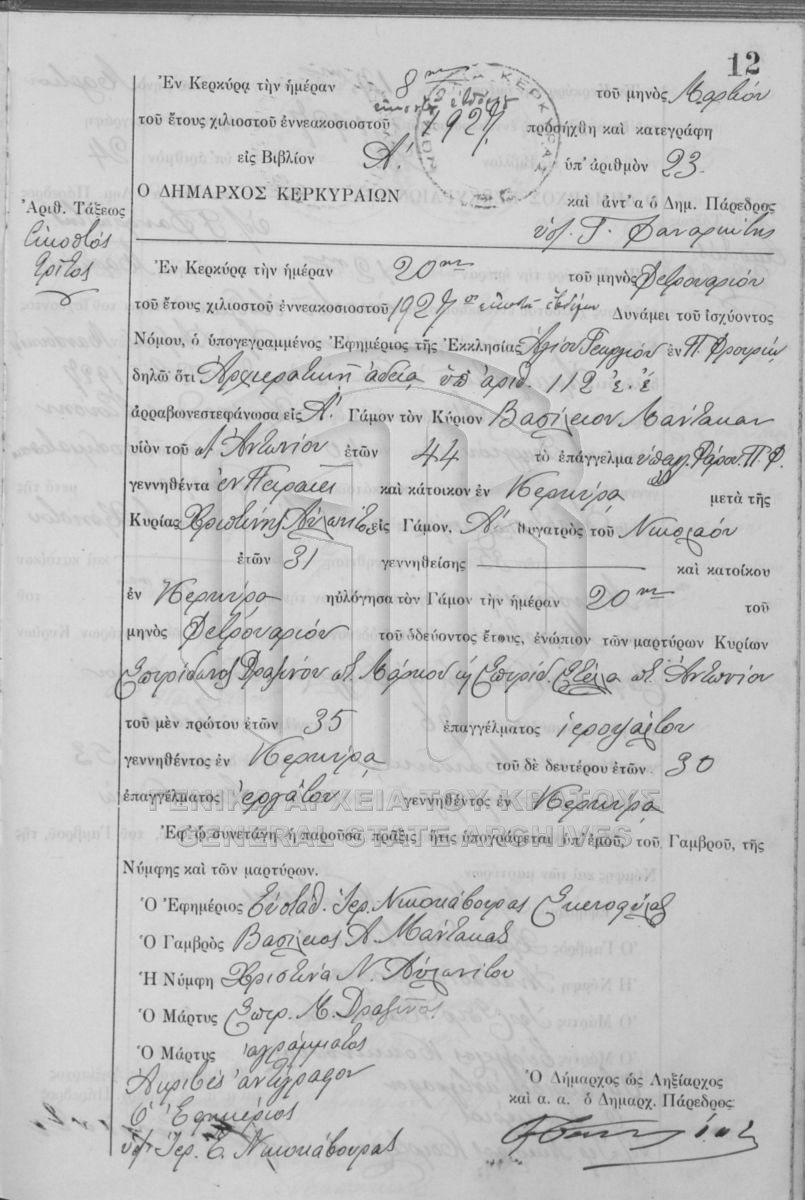 12
Ἐν Κερκύρᾳ τὴν ἡμέραν 8ην τοῦ μηνὸς Μαρτίου
εἰκοστοῦ ἑβδόμου
τοῦ ἔτους χιλιοστοῦ ἐννεακοσιοστοῦ 1927 προσήχθη καὶ κατεγράφη
εἰς Βιβλίον Α΄. ὑπ' ἀριθμὸν 23.
Ο ΔΗΜΑΡΧΟΣ ΚΕΡΚΥΡΑΙΩΝ καὶ ἀντ'α ὁ Δημ. Πάρεδρος
Ἀριθ. Τάξεως
Εἰκοστός
τρίτος
Ἐν Κερκύρᾳ τὴν ἡμέραν 20ην τοῦ μηνὸς Φεβρουαρίου
τοῦ ἔτους χιλιοστοῦ ἐννεακοσιοστοῦ 1927 εἰκοστοῦ ἑβδόμου Δυνάμει τοῦ ἰσχύοντος
Νόμου, ὁ ὑπογεγραμμένος Ἐφημέριος τῆς Ἐκκλησίας Ἁγίου Γεωργίου ἐν Π. Φρουρίῳ
δηλῶ ὅτι Ἀρχιερατικῇ ἀδείᾳ ὑπ' ἀριθ. 112 ἐ. ἔ
ἀρραβωνεστεφάνωσα εἰς Α΄. Γάμον τὸν Κύριον Βασίλειον Μάντακαν
υἱὸν τοῦ Ἀντωνίου ἐτῶν 44 τὸ ἐπάγγελμα Φάρου Π. Φ.
γεννηθέντα ἐν Πειραιεῖ καὶ κάτοικον ἐν Κερκύρᾳ μετὰ τῆς
Κυρίας Χριστίνης Αὐλωνίτου εἰς Γάμον, Α΄. θυγατρὸς τοῦ Νικολάου
ἐτῶν 31 γεννηθείσης καὶ κατοίκου
ἐν Κερκύρᾳ ηὐλόγησα τὸν Γάμον τὴν ἡμέραν 20ην τοῦ
μηνὸς Φεβρουαρίου τοῦ ὁδεύοντος ἔτους, ἐνώπιον τῶν μαρτύρων Κυρίων
Σπυρίδωνος Δραζίνου ποτ. Μάρκου καὶ Σπυρίδ. ποτ. Ἀντωνίου
τοῦ μὲν πρώτου ἐτῶν 35 ἐπαγγέλματος ἱεροψάλτου
γεννηθέντος ἐν Κερκύρᾳ τοῦ δὲ δευτέρου ἐτῶν 30
ἐπαγγέλματος ἐργάτου γεννηθέντος ἐν Κερκύρᾳ
ΓΕΝΙΚΑ ΑΡΧΕΙΑ ΤΟΥ ΚΡΑΤΟΥΣ
GENERAL STATE ARCHIVES
Ἐφ' ᾧ συνετάγη ἡ παροῦσα πρᾶξις ἥτις ὑπογράφεται ὑπ' ἐμοῦ, τοῦ Γαμβροῦ, τῆς
Νύμφης καὶ τῶν μαρτύρων.
Ὁ Ἐφημέριος Εὐσταθ. Ἱερ. Νικοκάβουρας Σκευοφύλαξ
Ὁ Γαμβρὸς Βασίλειος Α. Μάντακας
Ἡ Νύμφη Χριστίνα Ν. Αὐλωνίτου
Ὁ Μάρτυς Σπυρ. Μ. Δραζῖνος
Ὁ Μάρτυς ἀγράμματος
Ἀκριβὲς ἀντίγραφον
Ὁ Ἐφημέριος
ὑπ. Ἱερ. Ε. Νικοκάβουρας
Ὁ Δήμαρχος ὡς Ληξίαρχος
καὶ α. α. ὁ Δημαρχ. Πάρεδρος